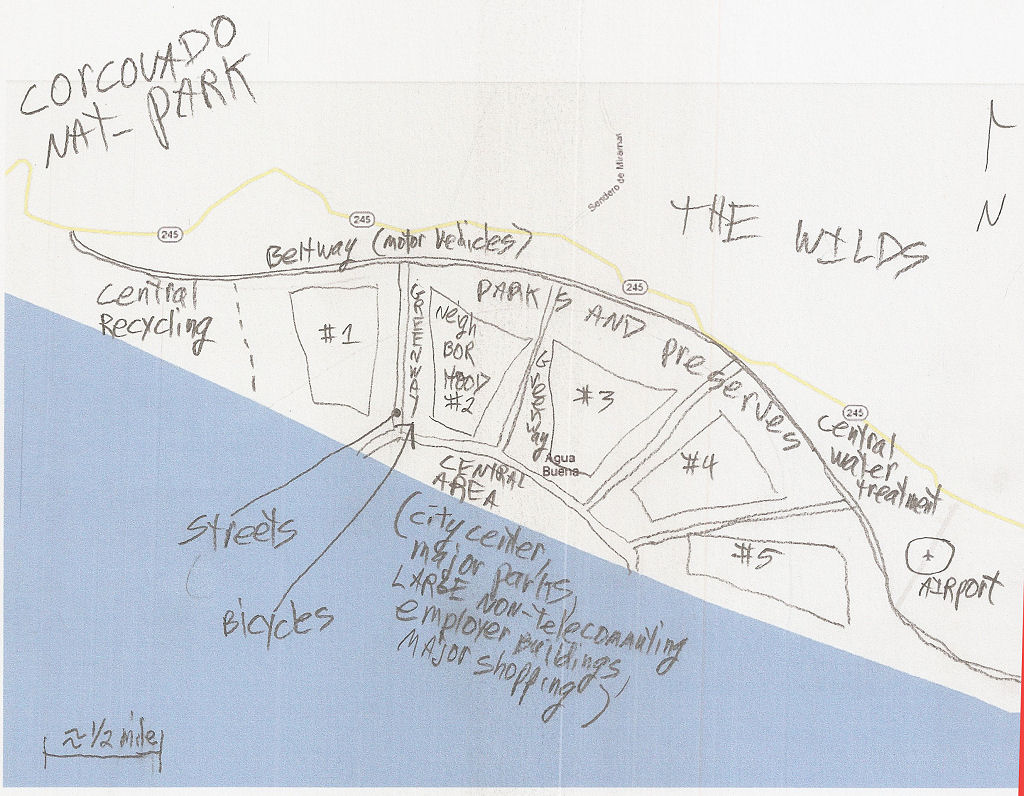 CORCOVADO
NAT- PARK
Sendero de Miramar
N
THE WILDS
245
245
Beltway (motor vehicles)
245
central
Recycling
PARKS AND preserves
#1
GREENWAY
Neigh
BOR
HOOD
#2
Greenway
#3
245
central
water
treatment
#4
Agua
Buena
CENTRAL
AREA
streets
(city center,
major parks,
LARGE NON-telecommuting
employer Buildings,
MAJOR shopping)
#5
AIRPORT
Bicycles
≈ 1/2 mile